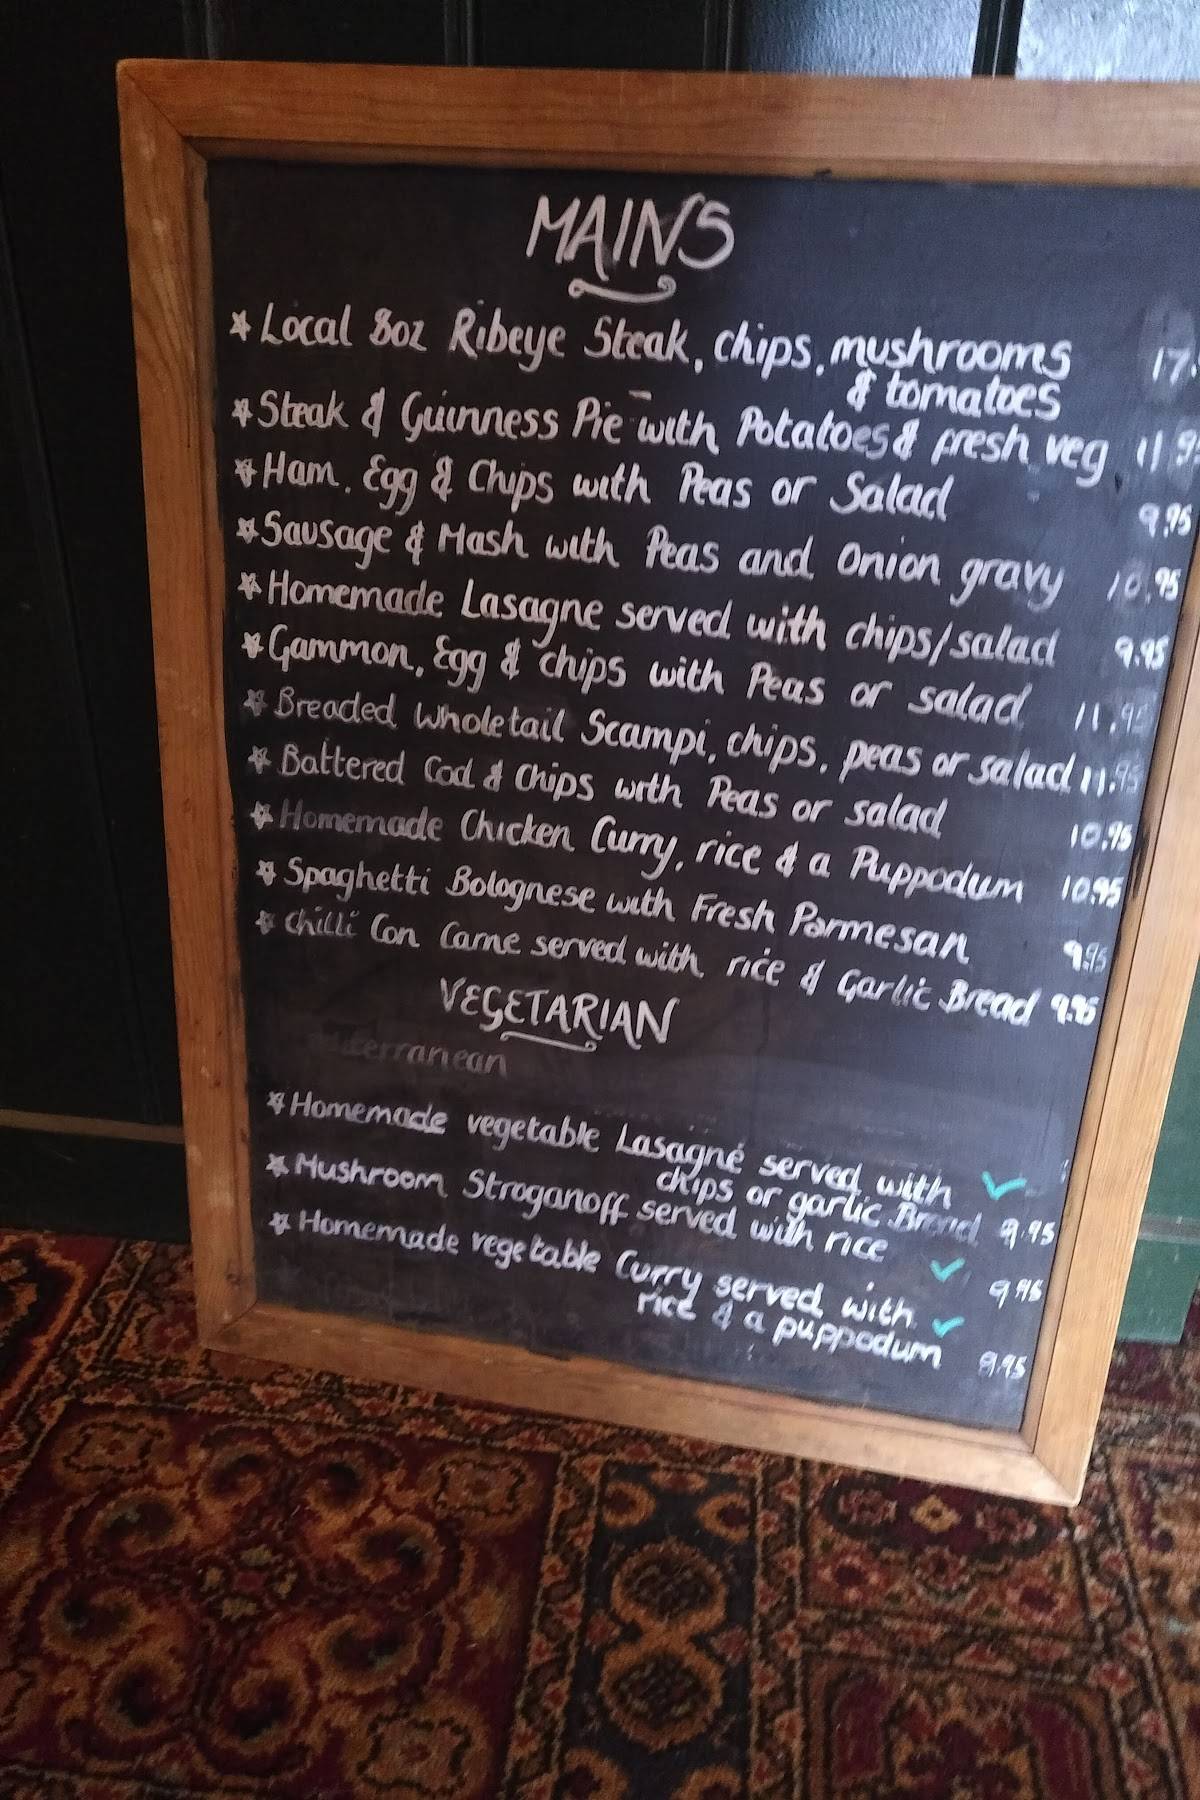 MAINS
* Local 8oz Ribeye Steak, chips, mushrooms 17.
& tomatoes
* Steak & Guinness Pie with Potatoes & fresh veg 11.9
* Ham, Egg & Chips with Peas or Salad 9.95
* Sausage & Mash with Peas and Onion gravy 10.95
* Homemade Lasagne served with chips/salad 9.95
* Gammon, Egg & chips with Peas or salad 11.95
* Breaded Wholetail Scampi, chips, peas or salad 11.95
* Battered Cod & Chips with Peas or salad 10.95
* Homemade Chicken Curry, rice & a Puppodum 10.95
* Spaghetti Bolognese with Fresh Parmesan 9.95
* Chilli Con Carne served with rice & Garlic Bread 9.95
VEGETARIAN
terranean
* Homemade vegetable Lasagné served with ✓
chips or garlic Bread 9.95
* Mushroom Stroganoff served with rice ✓ 9.95
* Homemade vegetable Curry served with ✓
rice & a puppodum 9.95